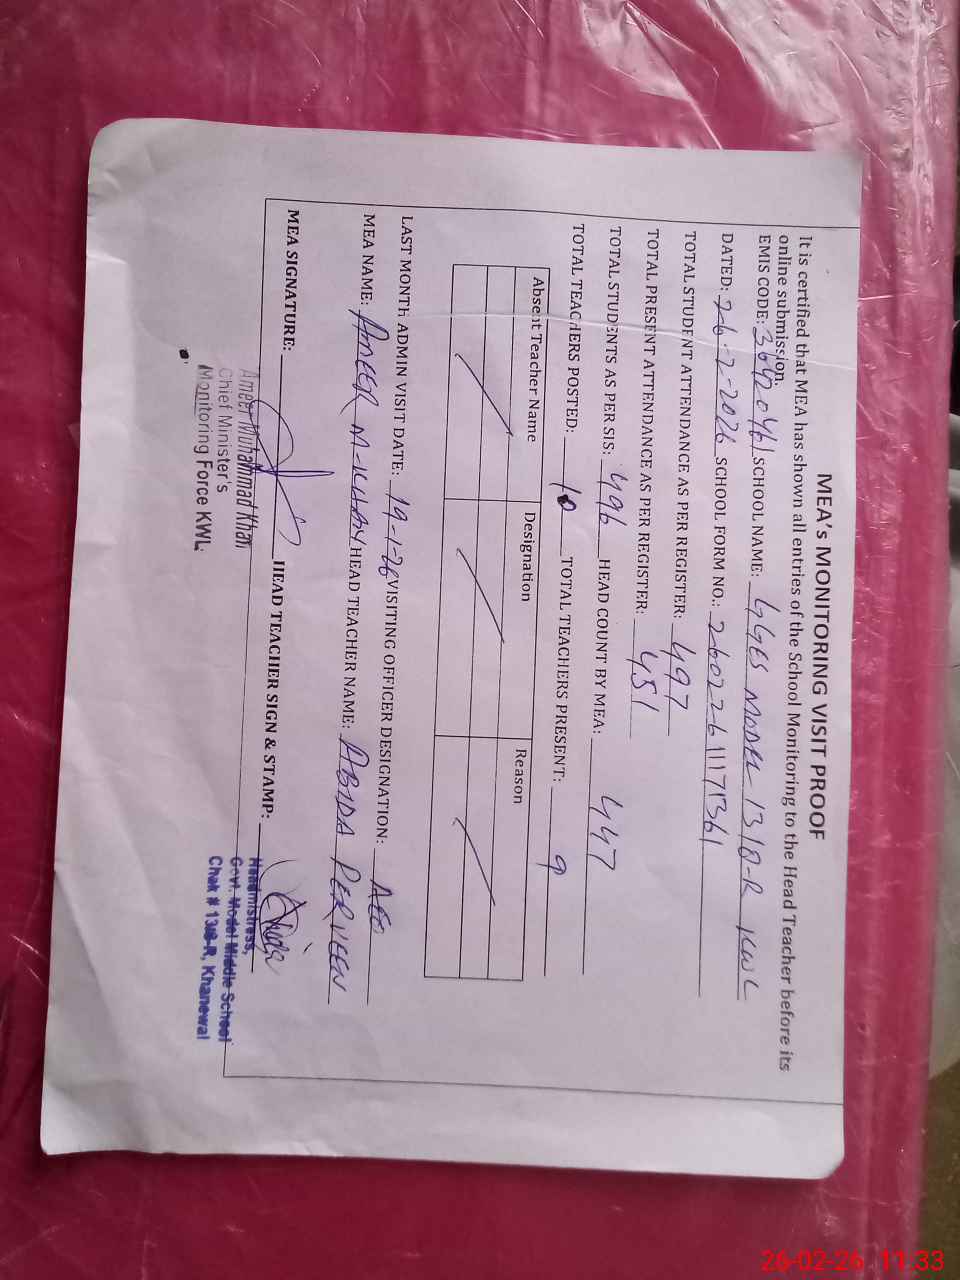 MEA's MONITORING VISIT PROOF
It is certified that MEA has shown all entries of the School Monitoring to the Head Teacher before its
online submission.
EMIS CODE: 36920461 SCHOOL NAME: GGES MODEL 13/8-R KWL
DATED: 26-2-2026 SCHOOL FORM NO.: 26022611171361
TOTAL STUDENT ATTENDANCE AS PER REGISTER: 497
TOTAL PRESENT ATTENDANCE AS PER REGISTER: 451
TOTAL STUDENTS AS PER SIS: 496 HEAD COUNT BY MEA: 447
TOTAL TEACHERS POSTED: 10 TOTAL TEACHERS PRESENT: 9
Absent Teacher Name Designation Reason
LAST MONTH ADMIN VISIT DATE: 19-1-26 VISITING OFFICER DESIGNATION: AEO
MEA NAME: AMEER M-KHAN HEAD TEACHER NAME: ABIDA PERVEEN
MEA SIGNATURE: HEAD TEACHER SIGN & STAMP: Abida
Ameer Muhammad Khan
Chief Minister's
Monitoring Force KWL.
Headmistress,
Govt. Model Middle School
Chak # 13/8-R, Khanewal
26-02-26 11:33